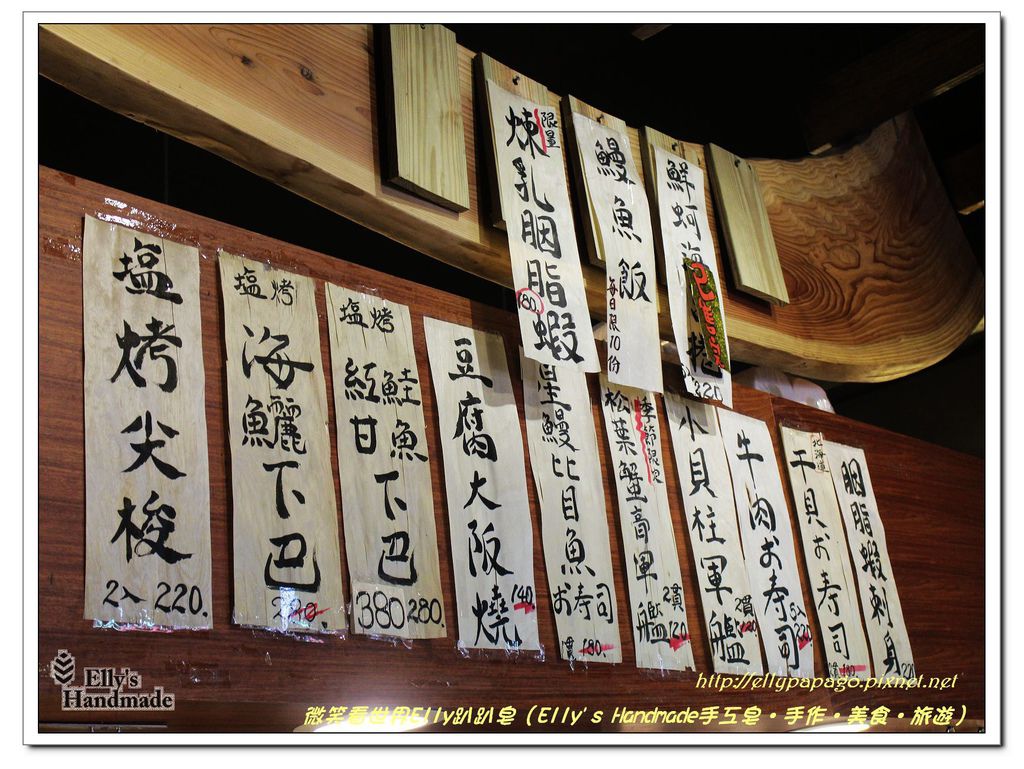 限量
煉乳胭脂蝦
180.
鰻魚飯
每日限10份
鮮蚵
捲
220
塩烤尖梭
2入 220.
塩烤
海鱺下巴
220.
塩烤
紅甘 鮭魚
下巴
380 280.
豆腐大阪燒
140.
星鰻比目魚
お寿司
180.
季節限定
松葉蟹膏軍艦
2貫
120
小貝柱軍艦
2貫
牛肉お寿司
220
北海道
干貝お寿司
胭脂蝦刺身
220
Elly's
Handmade
http://ellypapago.pixnet.net
微笑看世界Elly趴趴皂（Elly's Handmade手工皂・手作・美食・旅遊）